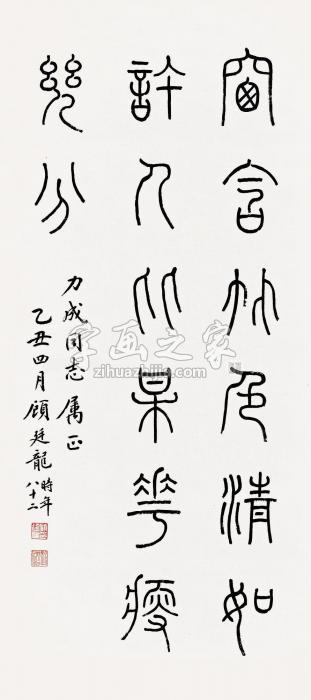 窗含竹色清如
許人比某華瘦
幾分
力成同志属正
乙丑四月顧廷龍時年八十二
字画之家
www.zihuazhijia.com